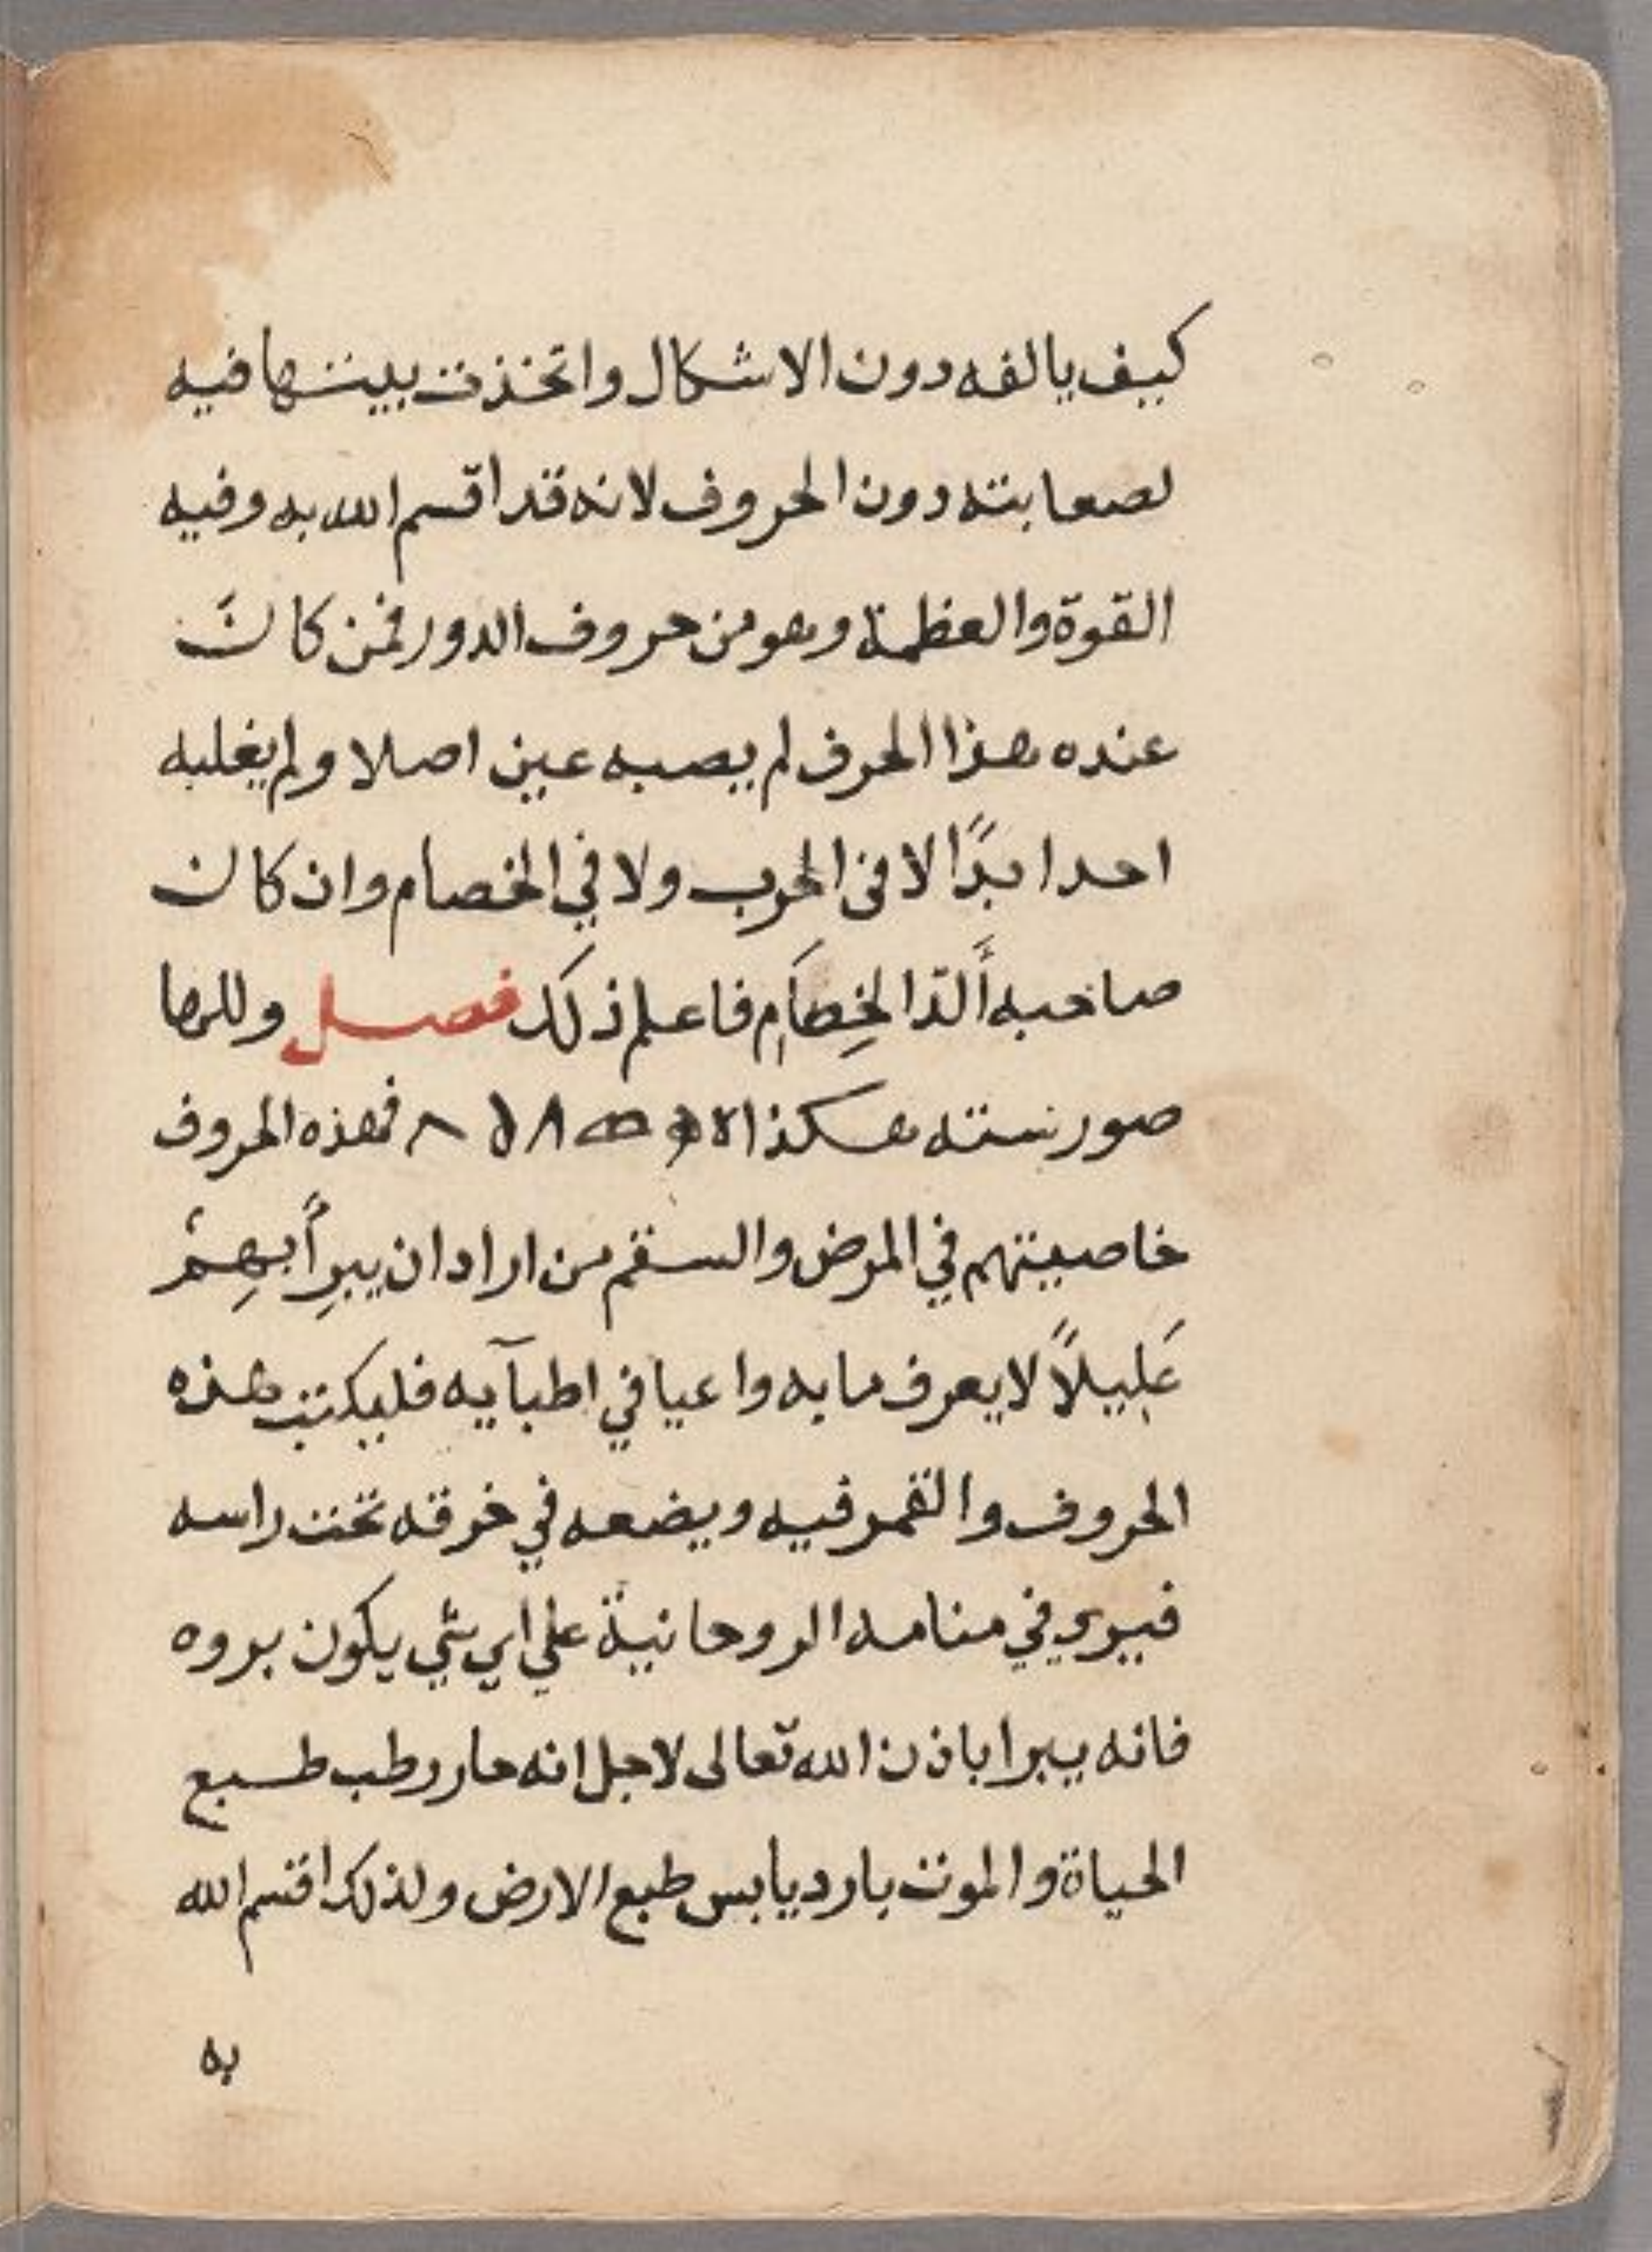 كيف يالفه دون الاشكال واتخذت بيتها فيه
لصعابته دون الحروف لانه قد اقسم الله به وفيه
القوة والعظمة وهو من حروف الدور فمن كانَ
عنده هذا الحرف لم يصبه عين اصلا ولم يغلبه
احد ابدًا لا في الحرب ولا في الخصام وان كان
صاحبه أَلدّ الخِصَام فاعلم ذلك فصل وللها
صور سته هكذا فهذه الحروف
خاصيتهم في المرض والسقم من اراد ان يبرِأ بهِم
عَلِيلاً لا يعرف ما به واعيا في اطبآيه فليكتب هذه
الحروف والقمر فيه ويضعه في خرقه تحت راسه
فيري في منامه الروحانية علي اي شي يكون بروه
فانه يبرا باذن الله تعالى لاجل انه حار رطب طبع
الحياة والموت بارد يابس طبع الارض ولذلك اقسم الله
به